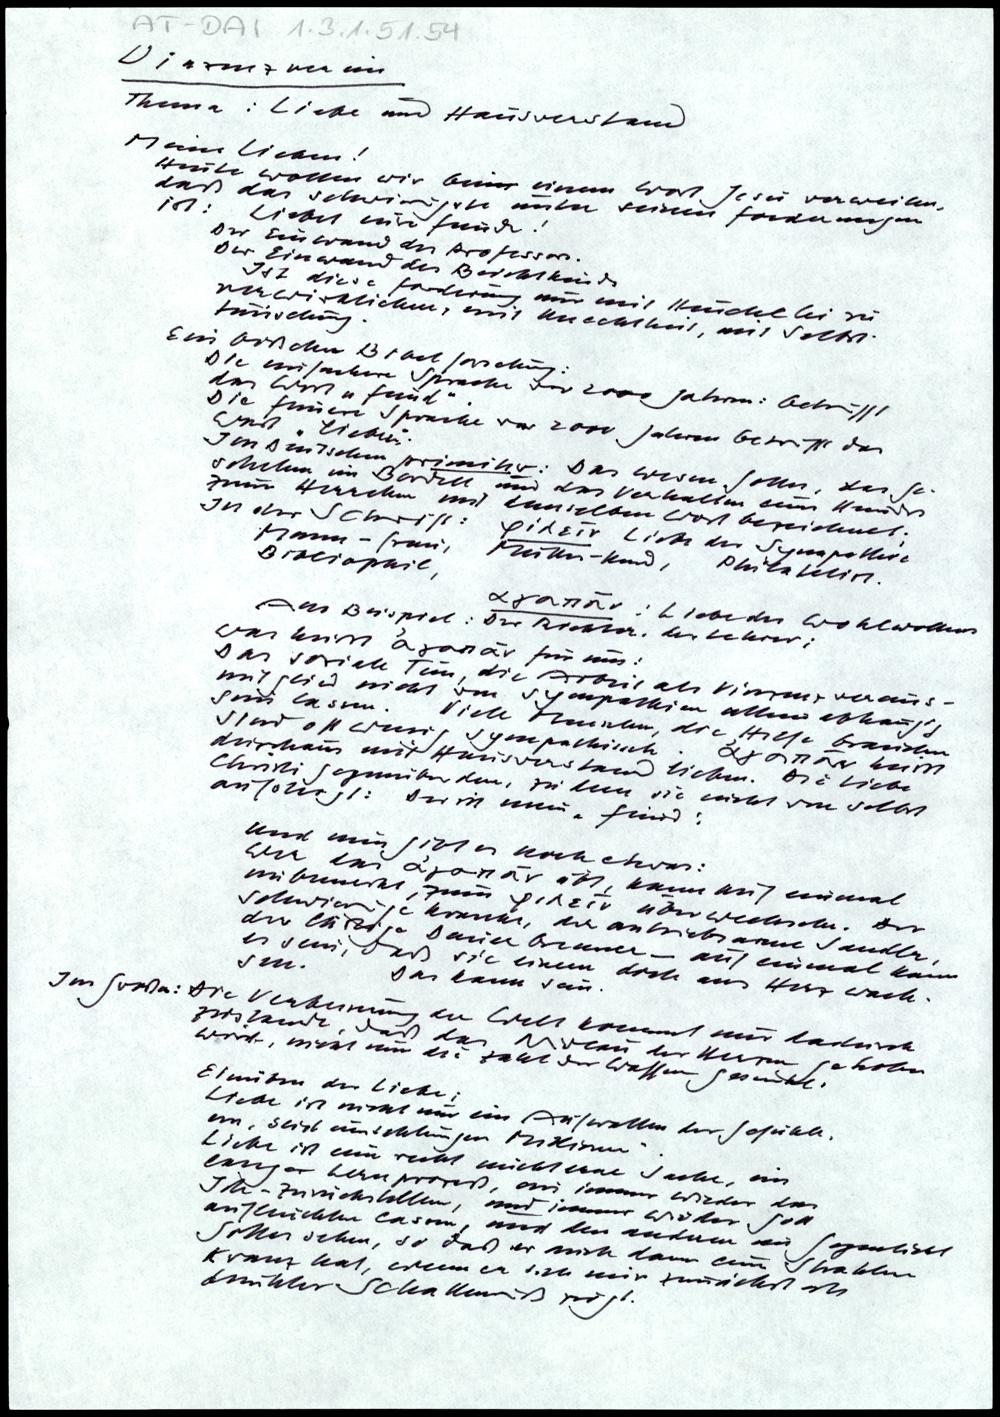 AT-DAI 1.3.1.51.54
Vinzenzverein
Thema: Liebe und Hausverstand
Meine Lieben!
Heute wollen wir beim einem Wort Jesu verweilen,
daß das schwierigste unter seinen Forderungen
ist: Liebet eure Feinde!
Der Einwand des Professors.
Der Einwand des Beichtkinds
Ist diese Forderung nur mit Heuchelei zu
verwirklichen, mit Knechtheit, mit Selbst-
täuschung.
Ein bißchen Bibelforschung:
Die einfachere Sprache vor 2000 Jahren: betrifft
das Wort "Feind".
Die feinere Sprache vor 2000 Jahren betrifft das
Wort "Lieben".
Im Deutschen primitiv: Das Wesen Gottes, das Ge-
schehen im Bordell und das Verhalten eines Hundes
zum Herrchen mit demselben Wort bezeichnet.
In der Schrift: φιλεῖν Liebe der Sympathie
Mann-Frau, Mutter-Kind, Philatelist.
Bibliophil,
ἀγαπᾶν: Liebe des Wohlwollens
Am Beispiel: Der Richter, der Lehrer;
Was heißt ἀγαπᾶν für uns:
Das soziale Tun, die Arbeit als Vinzenzvereins-
mitglied nicht von Sympathien allein abhängig
sein lassen. Viele Menschen, die Hilfe brauchen
sind oft wenig sympathisch. ἀγαπᾶν heißt
durchaus mit Hausverstand lieben. Die Liebe
Christi gegenüber den, zu dem sie nicht von selbst
aufsteigt: Das ist mein "Feind":
Und nun gibt es noch etwas:
Wer das ἀγαπᾶν übt, kann auf einmal
unbemerkt, zum φιλεῖν überwechseln. Der
schwierige Kranke, der antriebsarme Sandler,
der lästige Dauer - auf einmal kann
es sein, daß sie einem doch ans Herz wach-
sen. Das kann sein.
Im Großen: Die Verbesserung der Welt kommt nur dadurch
zustande, daß das Niveau der Herzen gehoben
wird, nicht nur die Zahl der Waffen gesenkt.
Einüben der Liebe:
Liebe ist nicht nur ein Aufwallen der Gefühle.
"Seid umschlungen Millionen".
Liebe ist eine recht nüchterne Sache, ein
langer Lernprozeß, ein immer wieder das
Ich-Zurückstellen, und immer wieder Gott
aufleuchten lassen, und den anderen im Gegenlicht
Gottes sehen, so daß er auch dann einen Strahlen
Kranz hat, wenn er sich mir zunächst als
dunkler Schattenriß zeigt.